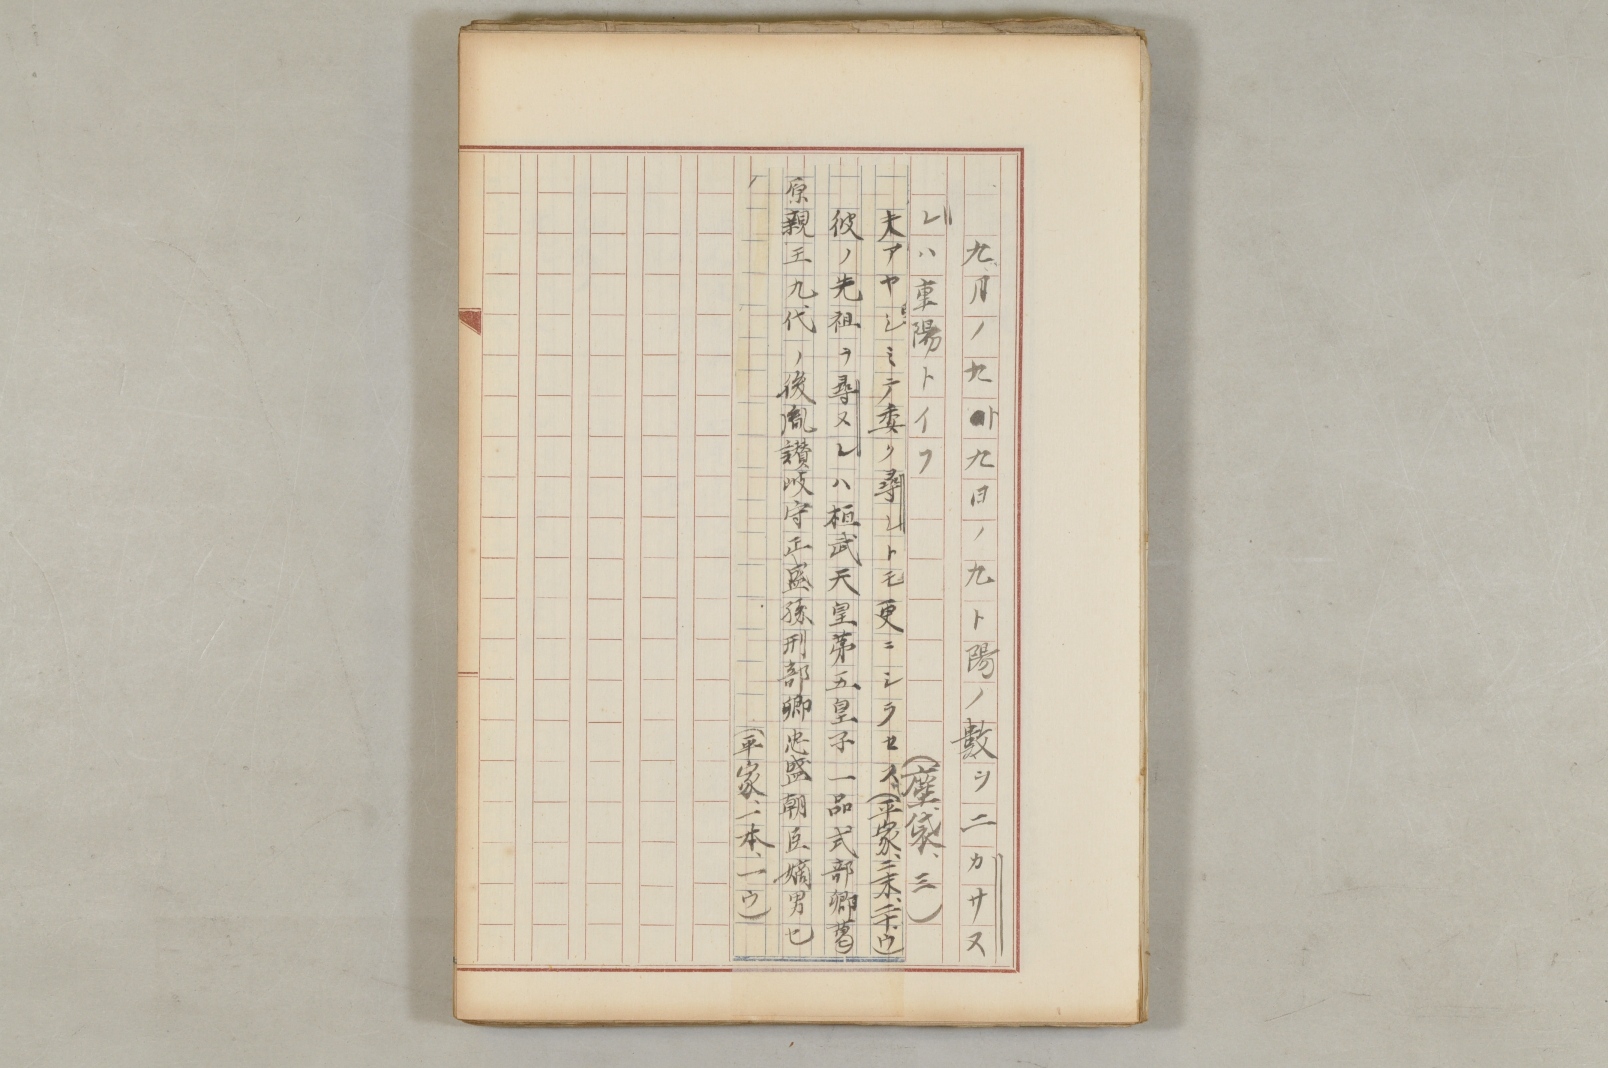 九月ノ九日ノ九ト陽ノ數シニカサス
レハ重陽トイフ
(塵袋、三)
夫アヤシミテ委ク尋レトモ更ニシラセス(平家、二末、二十、ウ)
彼ノ先祖ヲ尋ヌレハ桓武天皇第五皇子一品式部卿葛
原親王九代ノ後胤讃岐守正盛孫刑部卿忠盛朝臣嫡男也
(平家、一本、一ウ)